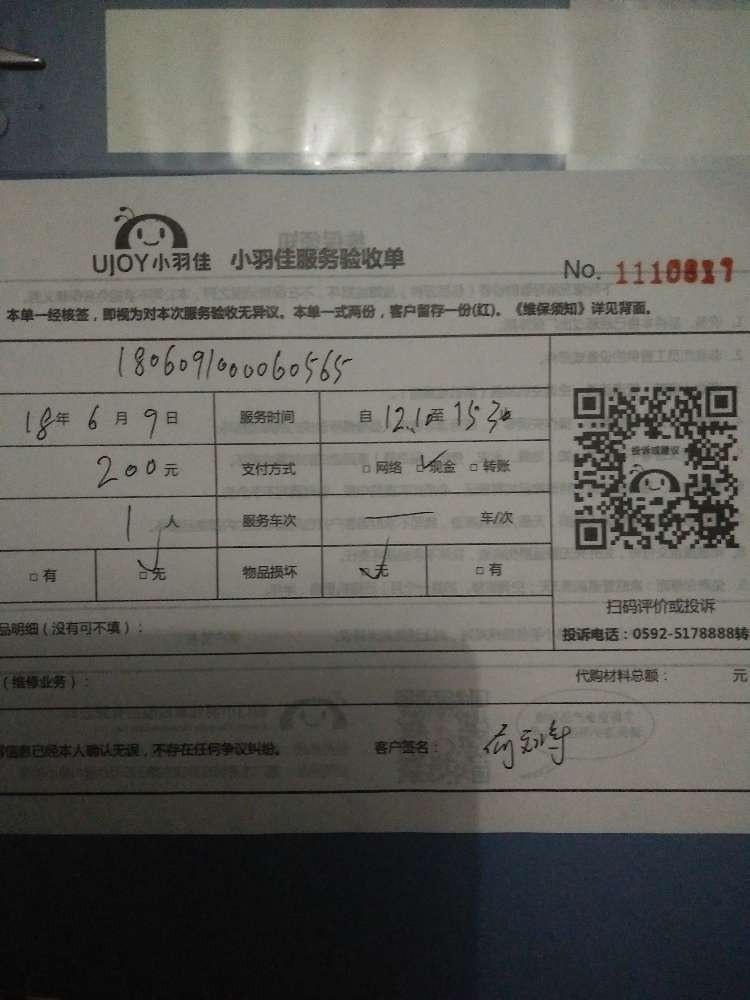 UJOY小羽佳 小羽佳服务验收单
No. 1110817
本单一经核签，即视为对本次服务验收无异议。本单一式两份，客户留存一份(红)。《维保须知》详见背面。
1806091000060565
18年 6月 9日 服务时间 自 12.10至 15:30
200元 支付方式 □网络 ☑现金 □转账
1人 服务车次 — 车/次
□有 ☑无 物品损坏 ☑无 □有
投诉或建议
扫码评价或投诉
投诉电话：0592-5178888转
品明细（没有可不填）：
（维修业务）： 代购材料总额： 元
信息已经本人确认无误，不存在任何争议纠纷。 客户签名：